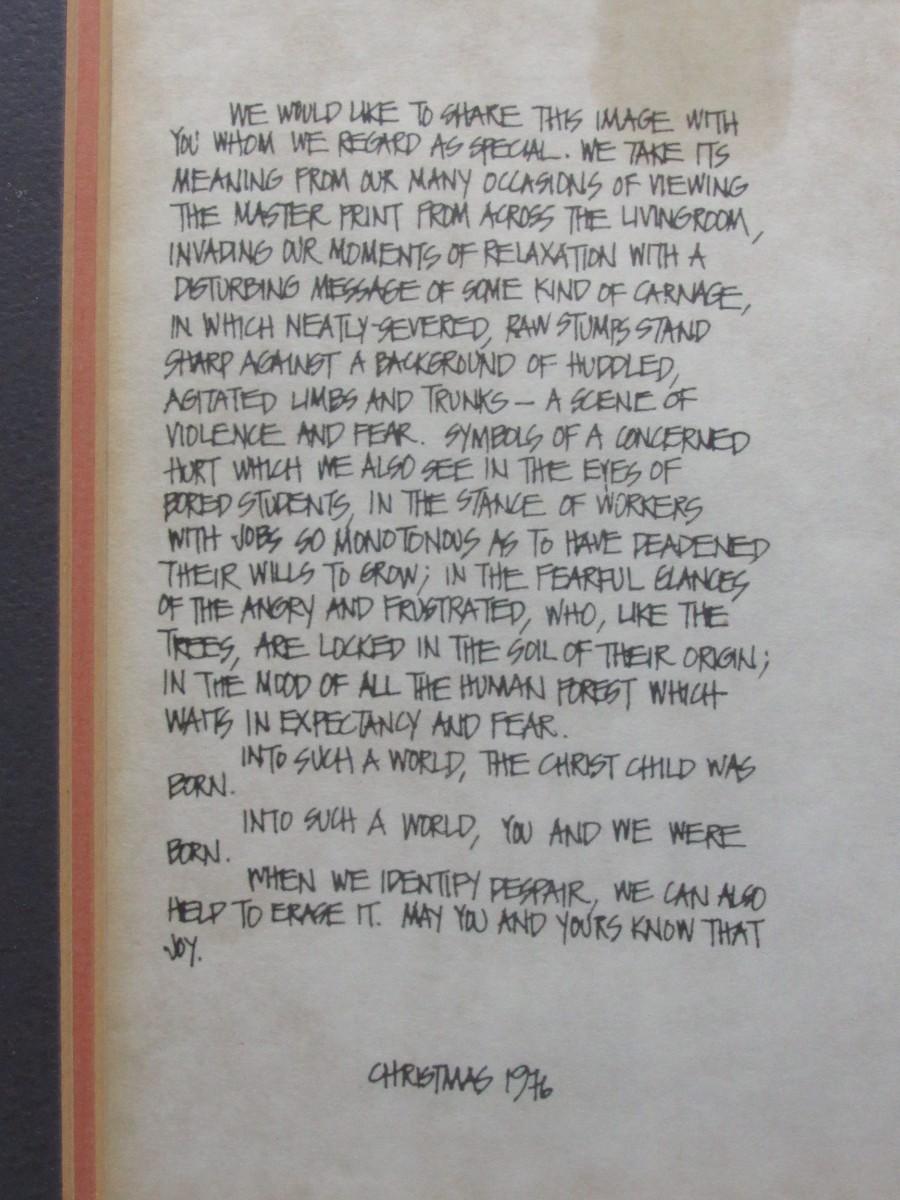 WE WOULD LIKE TO SHARE THIS IMAGE WITH
YOU WHOM WE REGARD AS SPECIAL. WE TAKE ITS
MEANING FROM OUR MANY OCCASIONS OF VIEWING
THE MASTER PRINT FROM ACROSS THE LIVINGROOM,
INVADING OUR MOMENTS OF RELAXATION WITH A
DISTURBING MESSAGE OF SOME KIND OF CARNAGE,
IN WHICH NEATLY-SEVERED, RAW STUMPS STAND
SHARP AGAINST A BACKGROUND OF HUDDLED,
AGITATED LIMBS AND TRUNKS — A SCENE OF
VIOLENCE AND FEAR. SYMBOLS OF A CONCERNED
HURT WHICH WE ALSO SEE IN THE EYES OF
BORED STUDENTS, IN THE STANCE OF WORKERS
WITH JOBS SO MONOTONOUS AS TO HAVE DEADENED
THEIR WILLS TO GROW; IN THE FEARFUL GLANCES
OF THE ANGRY AND FRUSTRATED, WHO, LIKE THE
TREES, ARE LOCKED IN THE SOIL OF THEIR ORIGIN;
IN THE MOOD OF ALL THE HUMAN FOREST WHICH
WAITS IN EXPECTANCY AND FEAR.
INTO SUCH A WORLD, THE CHRIST CHILD WAS
BORN.
INTO SUCH A WORLD, YOU AND WE WERE
BORN.
WHEN WE IDENTIFY DESPAIR, WE CAN ALSO
HELP TO ERASE IT. MAY YOU AND YOURS KNOW THAT
JOY.
CHRISTMAS 1976